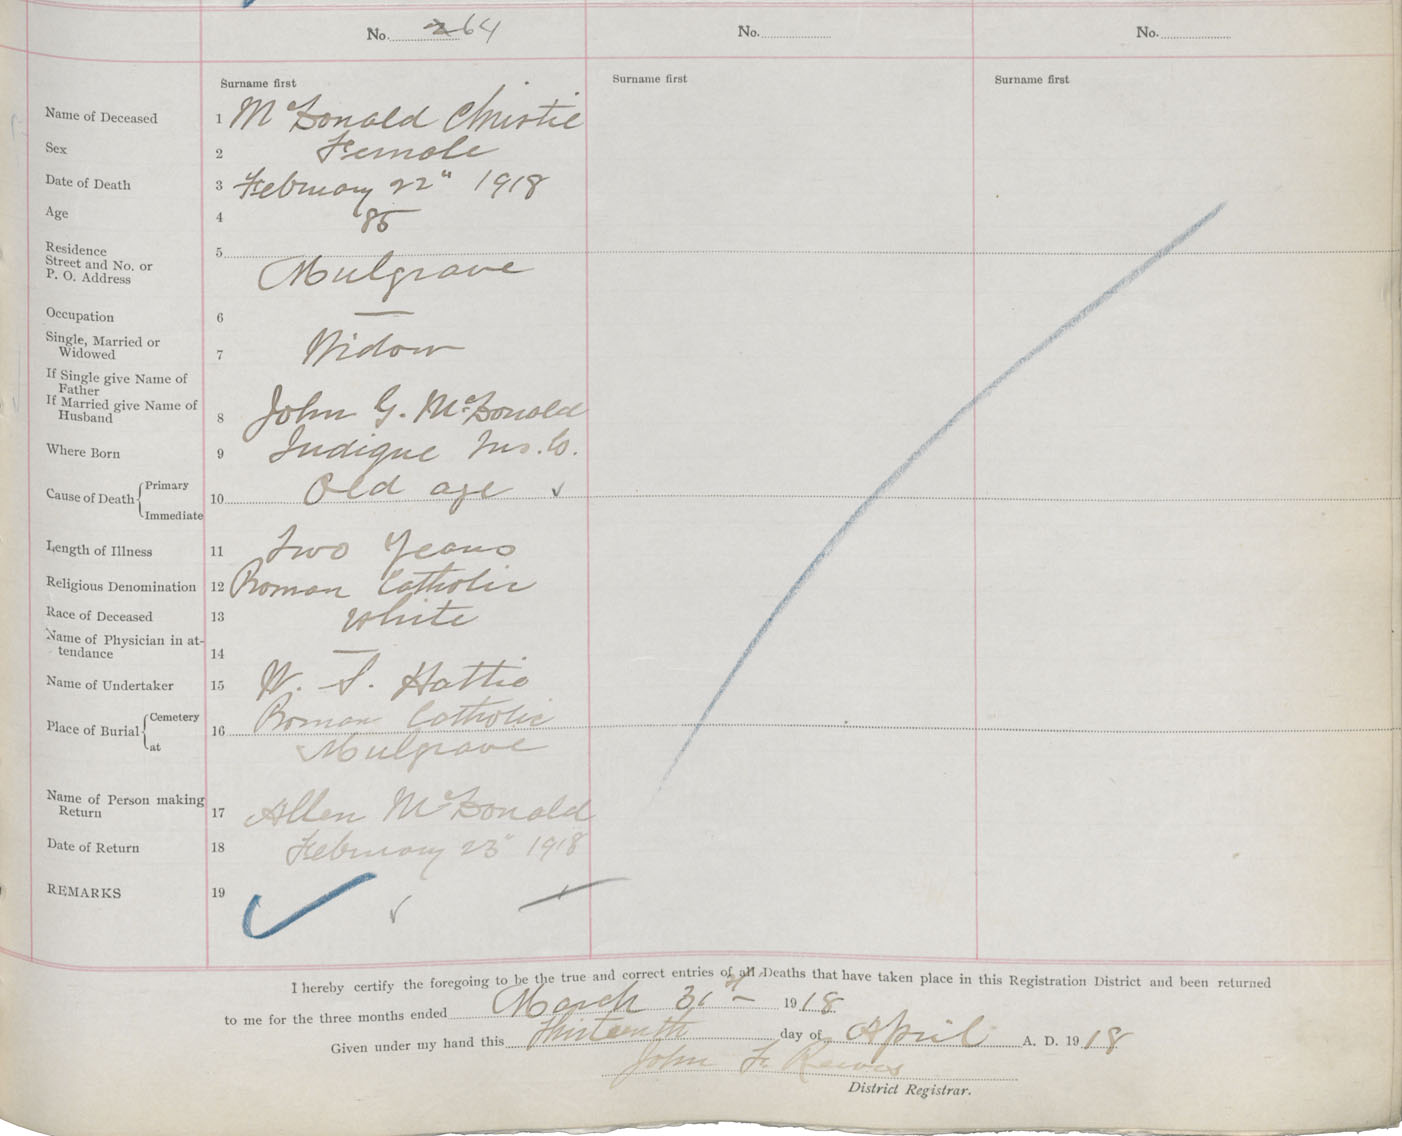 No. 264
No.
No.
Surname first
Surname first
Surname first
Name of Deceased 1 McDonald Christie
Sex 2 Female
Date of Death 3 February 22" 1918
Age 4 85
Residence
Street and No. or
P. O. Address 5 Mulgrave
Occupation 6 —
Single, Married or
Widowed 7 Widow
If Single give Name of
Father
If Married give Name of
Husband 8 John G. McDonald
Where Born 9 Judique Ins. Co.
Cause of Death { Primary
Immediate 10 Old age ✓
Length of Illness 11 Two Years
Religious Denomination 12 Roman Catholic
Race of Deceased 13 White
Name of Physician in at-
tendance 14 —
Name of Undertaker 15 W. S. Hattie
Place of Burial { Cemetery
at 16 Roman Catholic
Mulgrave
Name of Person making
Return 17 Allen McDonald
Date of Return 18 February 23" 1918
REMARKS 19
I hereby certify the foregoing to be the true and correct entries of all Deaths that have taken place in this Registration District and been returned
to me for the three months ended March 31st 1918
Given under my hand this thirteenth day of April A. D. 1918
John F. Reeves
District Registrar.